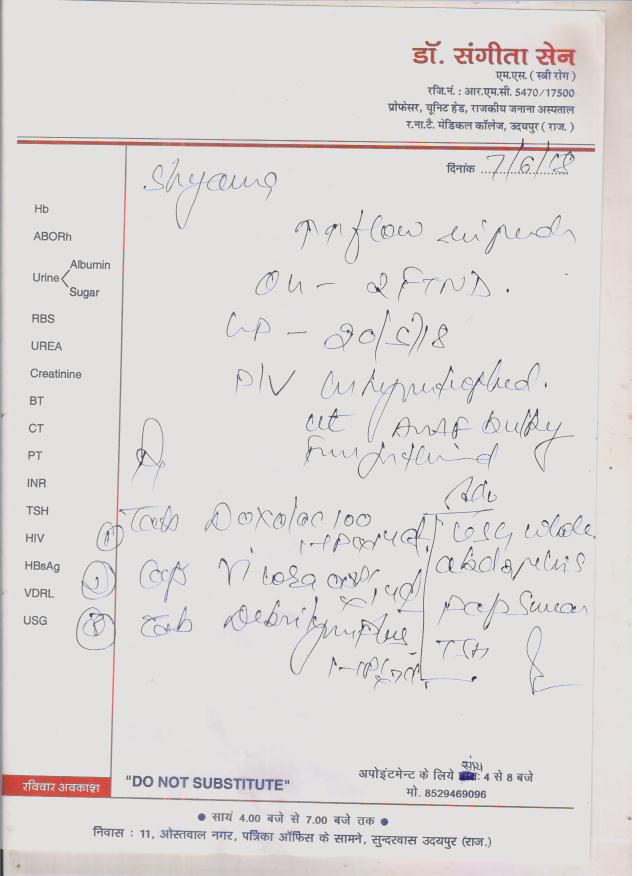 डॉ. संगीता सेन
एम.एस. ( स्त्री रोग )
रजि.नं. : आर.एम.सी. 5470/17500
प्रोफेसर, यूनिट हेड, राजकीय जनाना अस्पताल
र.ना.टै. मेडिकल कॉलेज, उदयपुर ( राज. )
दिनांक 7/6/18
Shyama
Hb
ABORh
Urine Albumin
Sugar
RBS
UREA
Creatinine
BT
CT
PT
INR
TSH
HIV
HBsAg
VDRL
USG
flow
OH - 2 FTND.
- 20/5/18
P/V
ut AVAF bulky
Adv
① Tab 100
② Cap
③ Tab Plus
USG whole
abdo pelvis
Pap Smear
TSH
रविवार अवकाश
"DO NOT SUBSTITUTE"
अपोइंटमेन्ट के लिये सांय : 4 से 8 बजे
मो. 8529469096
● सायं 4.00 बजे से 7.00 बजे तक ●
निवास : 11, ओस्तवाल नगर, पत्रिका ऑफिस के सामने, सुन्दरवास उदयपुर (राज.)